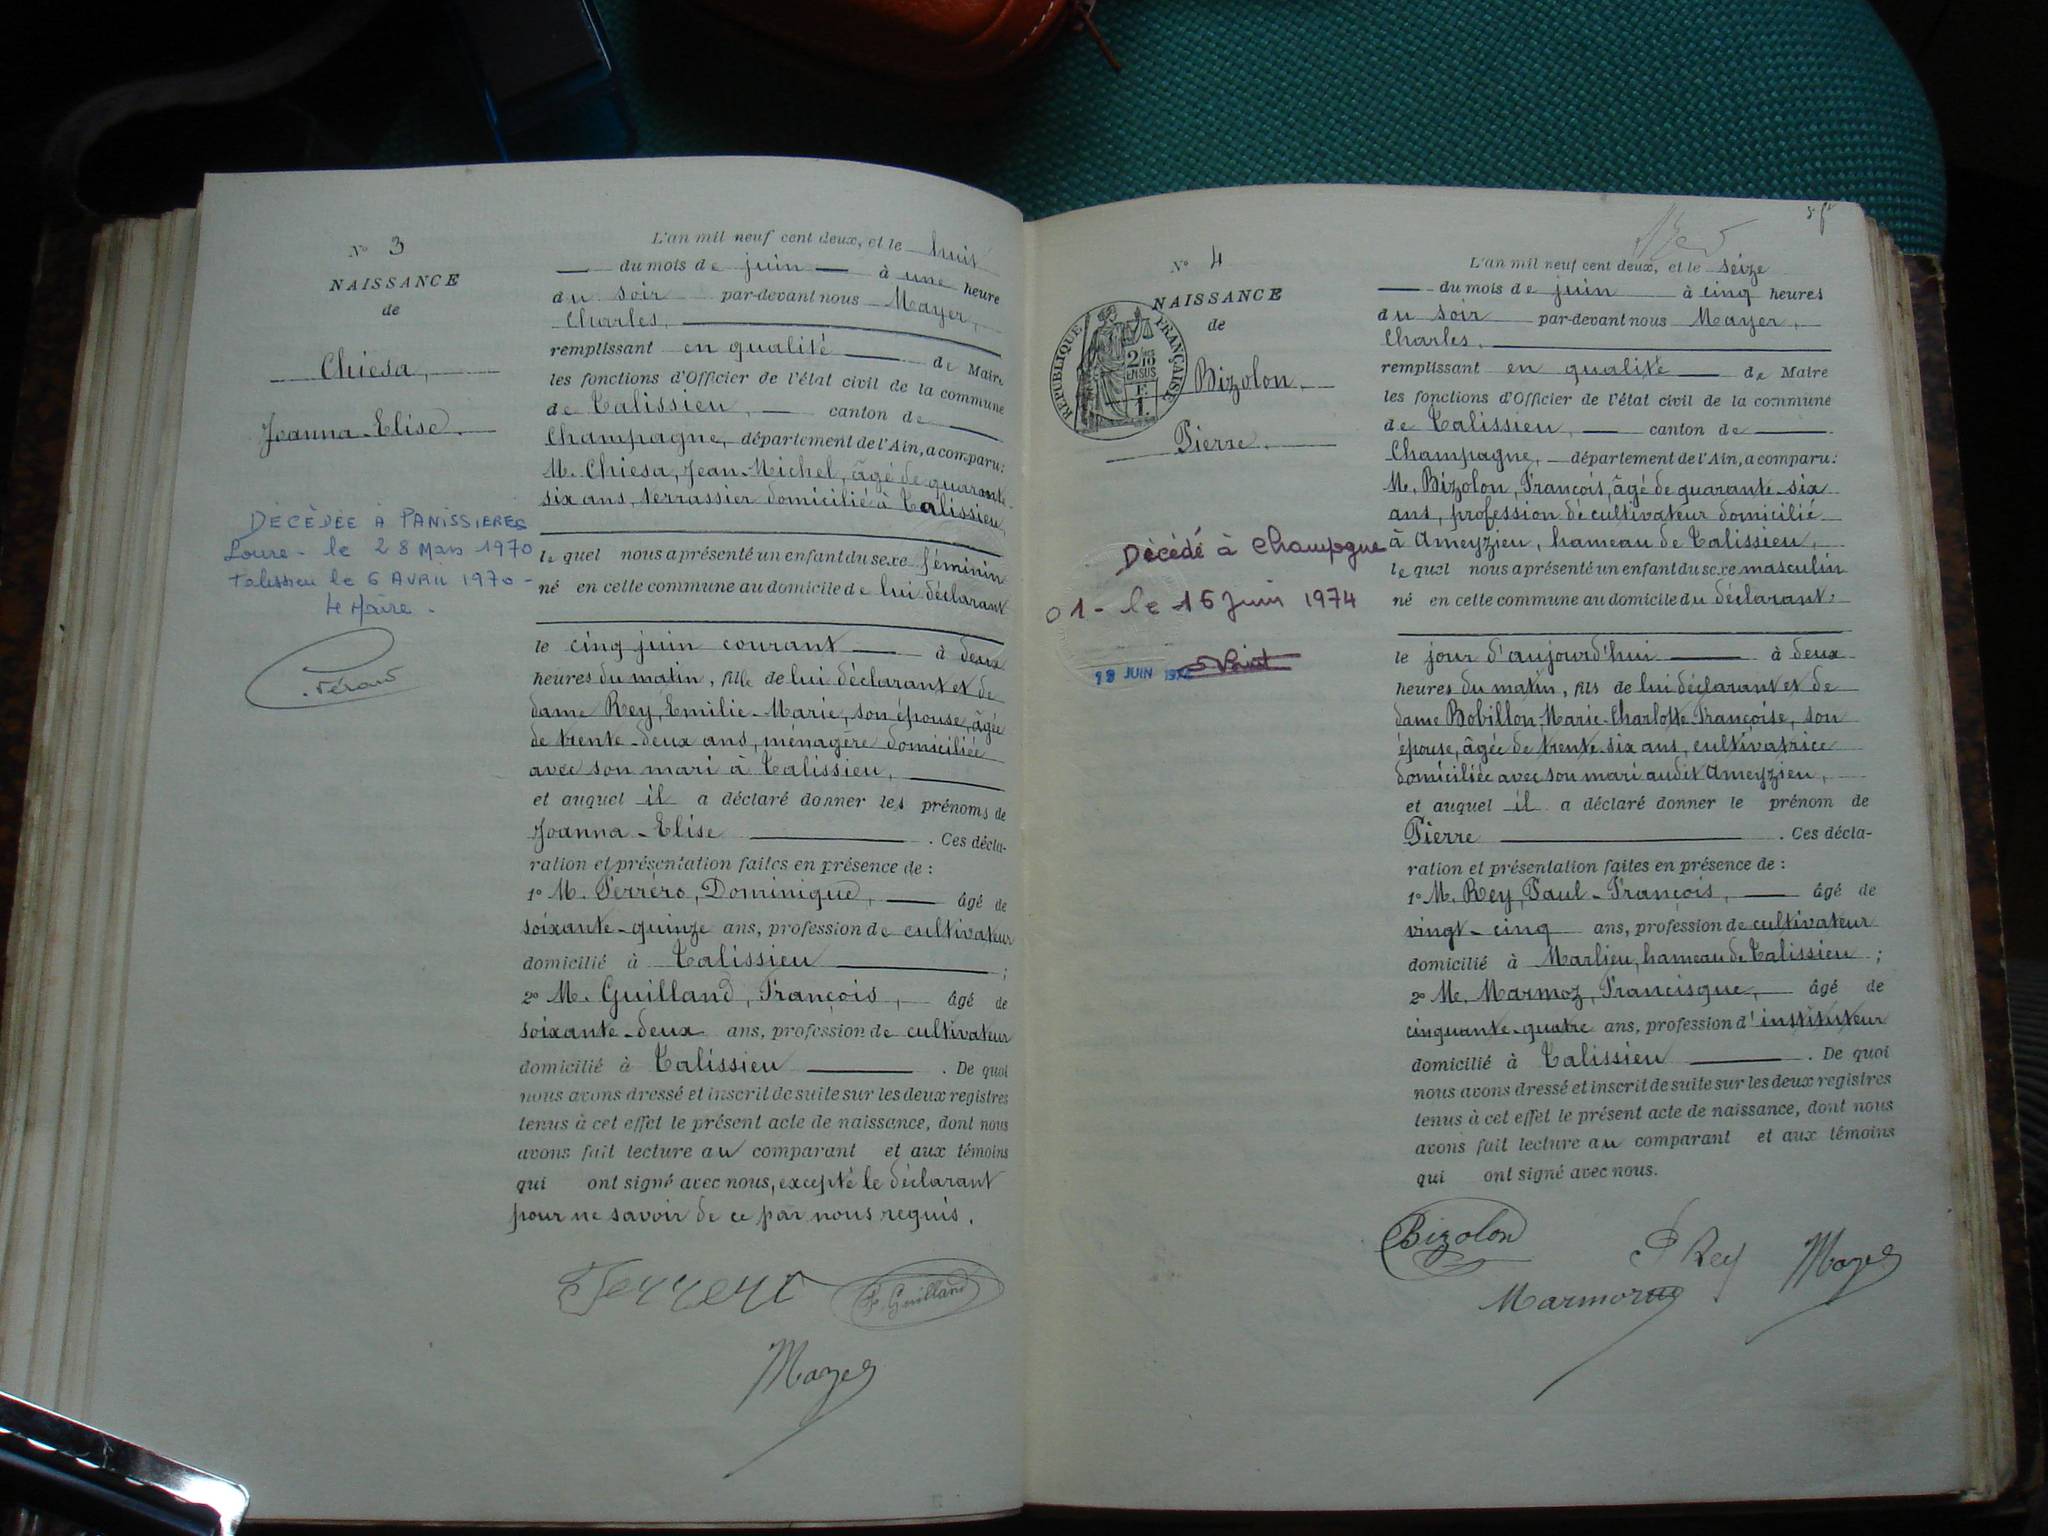 N° 3
NAISSANCE
de
Chiesa,
Joanna-Elise.
DÉCÉDÉE À PANISSIERES
Loire - le 28 Mars 1970
Talissieu le 6 AVRIL 1970 -
Le Maire.
L'an mil neuf cent deux, et le huit
du mois de juin à une heure
du soir par-devant nous Mayer,
Charles,
remplissant en qualité de Maire
les fonctions d'Officier de l'état civil de la commune
de Talissieu, canton de
Champagne, département de l'Ain, a comparu:
M. Chiesa, Jean-Michel, âgé de quarante-
six ans, terrassier domicilié à Talissieu
le quel nous a présenté un enfant du sexe féminin
né en cette commune au domicile de lui déclarant
le cinq juin courant à deux
heures du matin, fille de lui déclarant et de
dame Rey, Emilie-Marie, son épouse, âgée
de trente-deux ans, ménagère domiciliée
avec son mari à Talissieu,
et auquel il a déclaré donner les prénoms de
Joanna-Elise . Ces décla-
ration et présentation faites en présence de :
1° M. Ferréro, Dominique, âgé de
soixante-quinze ans, profession de cultivateur
domicilié à Talissieu ;
2° M. Guilland, François, âgé de
soixante-deux ans, profession de cultivateur
domicilié à Talissieu . De quoi
nous avons dressé et inscrit de suite sur les deux registres
tenus à cet effet le présent acte de naissance, dont nous
avons fait lecture au comparant et aux témoins
qui ont signé avec nous, excepté le déclarant
pour ne savoir de ce par nous requis.
F. Guilland
Mayer
N° 4
NAISSANCE
de
RÉPUBLIQUE FRANÇAISE
2/10 EN SUS
Bizolon,
Pierre.
Décédé à Champagne
01 - le 15 Juin 1974
JUIN
L'an mil neuf cent deux, et le seize
du mois de juin à cinq heures
du soir par-devant nous Mayer,
Charles.
remplissant en qualité de Maire
les fonctions d'Officier de l'état civil de la commune
de Talissieu, canton de
Champagne, département de l'Ain, a comparu:
M. Bizolon, François, âgé de quarante-six
ans, profession de cultivateur domicilié
à Ameyzieu, hameau de Talissieu,
le quel nous a présenté un enfant du sexe masculin
né en cette commune au domicile du déclarant,
le jour d'aujourd'hui à deux
heures du matin, fils de lui déclarant et de
dame Bobillon, Marie-Charlotte-Françoise, son
épouse, âgée de trente-six ans, cultivatrice
domiciliée avec son mari audit Ameyzieu,
et auquel il a déclaré donner le prénom de
Pierre . Ces décla-
ration et présentation faites en présence de :
1° M. Rey, Paul-François, âgé de
vingt-cinq ans, profession de cultivateur
domicilié à Marlieu, hameau de Talissieu ;
2° M. Marmoz, Francisque, âgé de
cinquante-quatre ans, profession d'instituteur
domicilié à Talissieu . De quoi
nous avons dressé et inscrit de suite sur les deux registres
tenus à cet effet le présent acte de naissance, dont nous
avons fait lecture au comparant et aux témoins
qui ont signé avec nous.
Bizolon
P Rey
Mayer
Marmoz